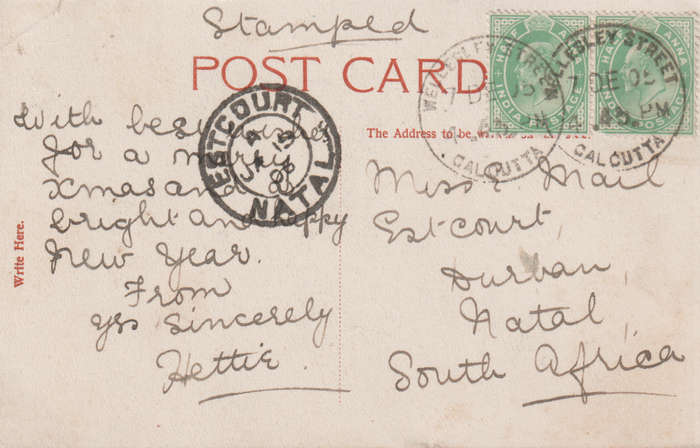 Stamped
POST CARD
HALF ANNA
INDIA POSTAGE
HALF ANNA
INDIA POSTAGE
WELLESLEY STREET
7 DE
CALCUTTA
WELLESLEY STREET
7 DE 05
PM
CALCUTTA
ESTCOURT
JA
06
NATAL
The Address to be
With best wishes
for a merry
Xmas and a
bright and happy
New Year.
From
yrs sincerely
Hettie.
Write Here.
Miss E Mail
Estcourt,
Durban,
Natal
South Africa